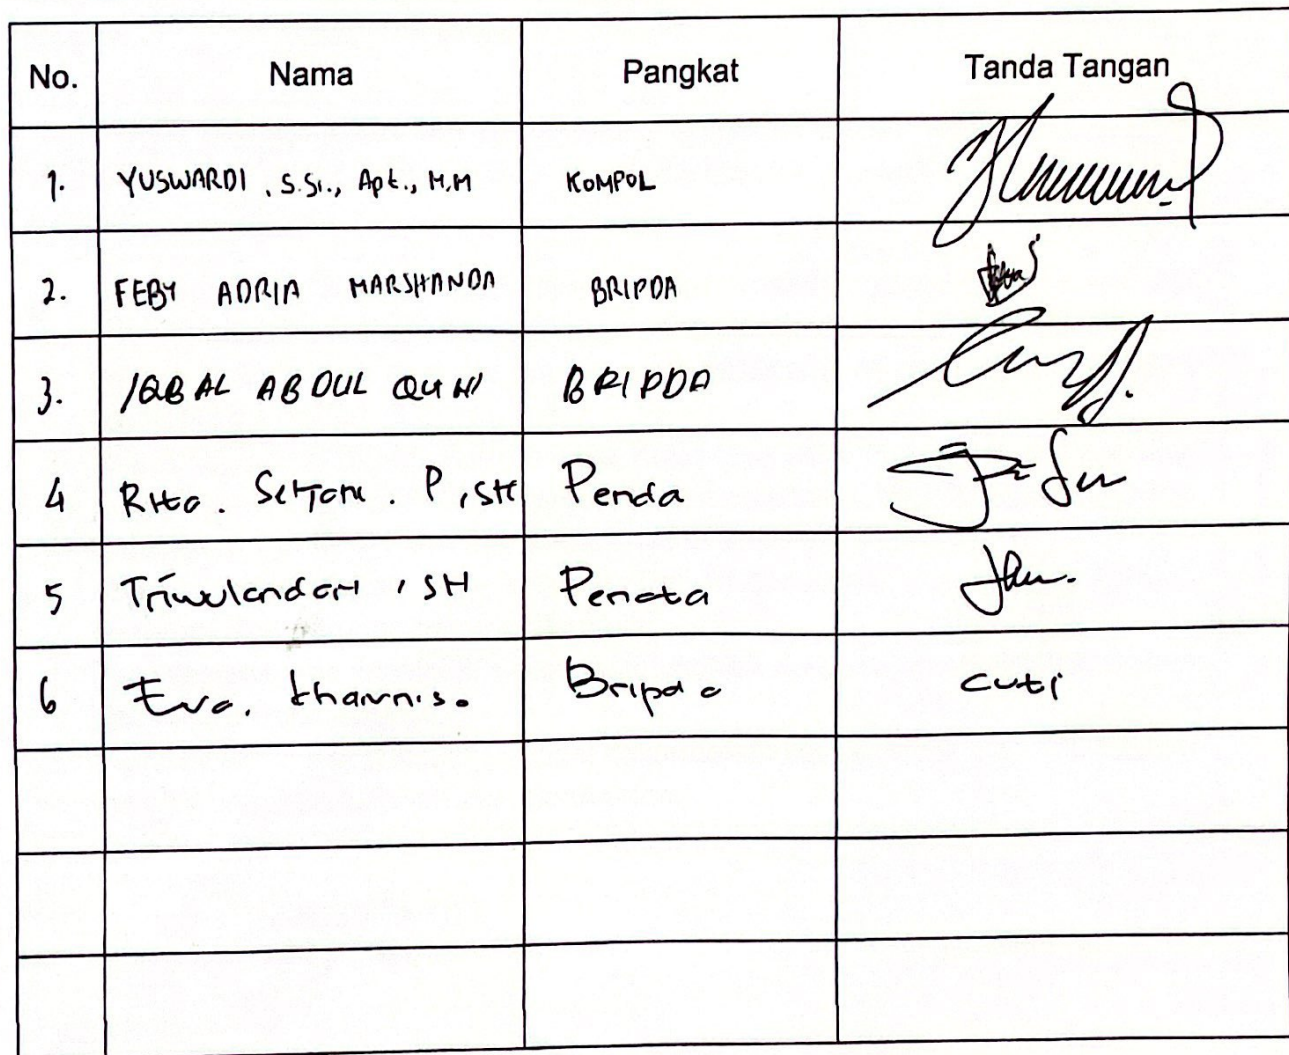 No. Nama Pangkat Tanda Tangan
1. YUSWARDI, S.Si., Apt., M.M KOMPOL
2. FEBY ADRIA MARSHANDA BRIPDA
3. IQBAL ABDUL QUNI BRIPDA
4 P, SH Penda
5 Triwulandari, SH Penata
6 Eva. Bripda cuti